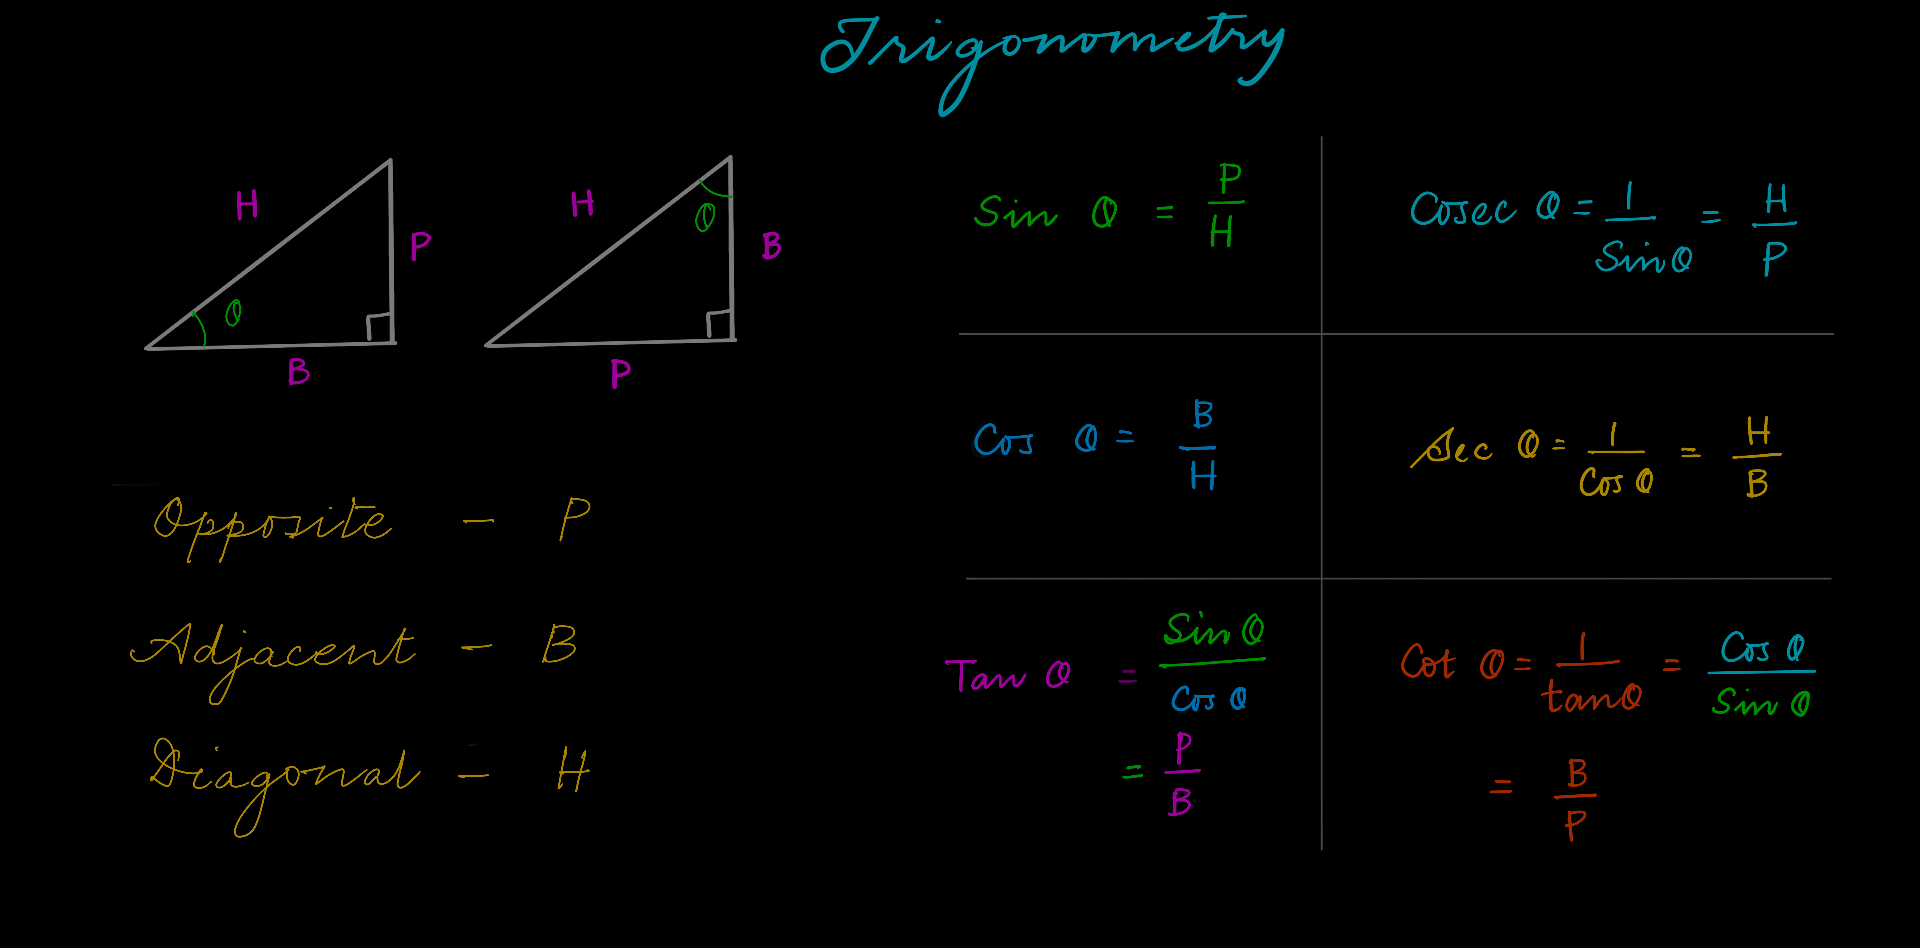 Trigonometry
H P θ B
H θ B P
Opposite - P
Adjacent - B
Diagonal - H
Sin θ = P/H
Cosec θ = 1/Sinθ = H/P
Cos θ = B/H
Sec θ = 1/Cos θ = H/B
Tan θ = Sin θ/Cos θ
= P/B
Cot θ = 1/tanθ = Cos θ/Sin θ
= B/P